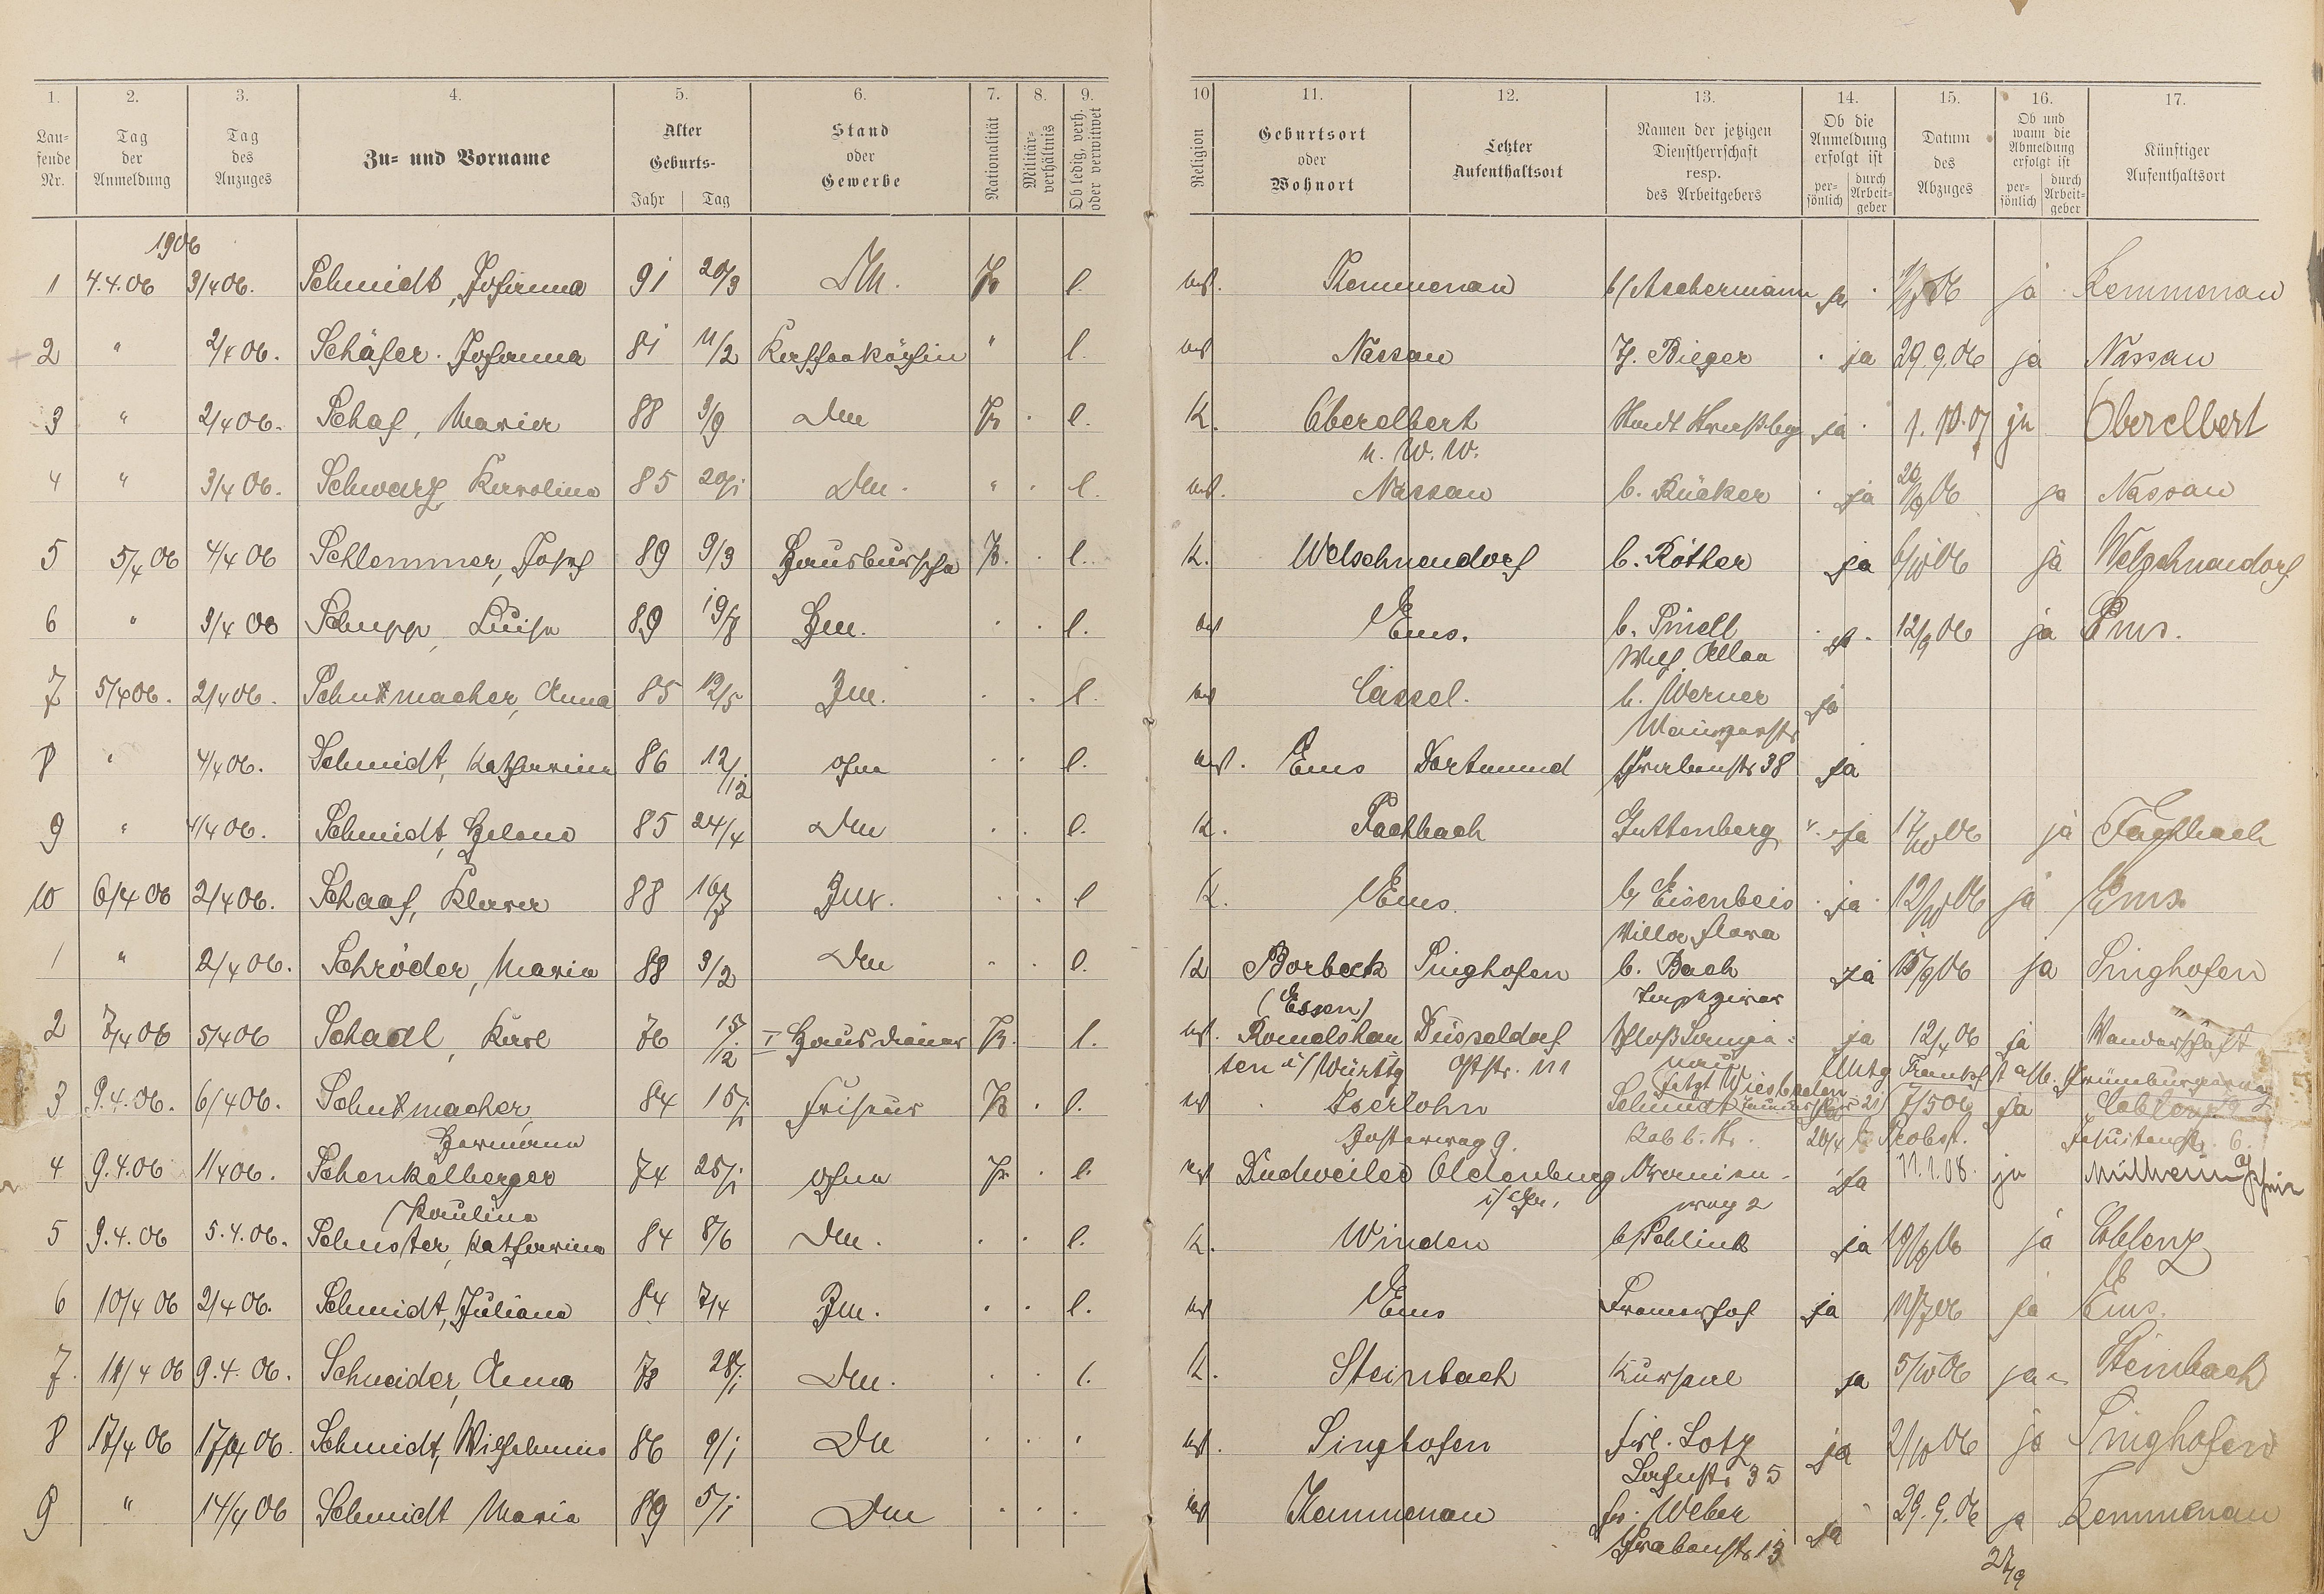 1. 2. 3. 4. 5. 6. 7. 8. 9. 10 11. 12. 13. 14. 15. 16. 17.
Lau-
fende
Nr.
Tag
der
Anmeldung
Tag
des
Anzuges
Zu- und Vorname
Alter
Geburts-
Jahr Tag
Stand
oder
Gewerbe
Nationalität
Militär-
verhältnis
Ob ledig, verh.
oder verwitwet
Religion
Geburtsort
oder
Wohnort
Letzter
Aufenthaltsort
Namen der jetzigen
Dienstherrschaft
resp.
des Arbeitgebers
Ob die
Anmeldung
erfolgt ist
per-
sönlich
durch
Arbeit-
geber
Datum
des
Abzuges
Ob und
wann die
Abmeldung
erfolgt ist
per-
sönlich
durch
Arbeit-
geber
Künftiger
Aufenthaltsort
1906
1 4.4.06 3/4 06. Schmidt, Johanna 91 20/3 Pr l. Kemmenau b/ Aschermann ja ja Kemmenau
2 " 2/4 06. Schäfer. Johanna 81 11/2 Kaffeeköchin " l. Nassau H. Bieger ja 29.9.06 ja Nassau
3 " 2/4 06. Schaf, Maria 88 3/9 Dm Pr l. K. Oberelbert Stadt Straßbg ja 1.10.07 ja Oberelbert
u. W. W.
4 " 3/4 06. Schwarz Karolina 85 20/1 Dm. " l. Nassau b. Rücker ja ja Nassau
5 5/4 06 4/4 06 Schlemmer, Josef 89 9/3 Hausbursche Pr. l. K. Welschneudorf b. Röther ja 6/10 06 ja Welschneudorf
6 " 3/4 06 Schupp, Luise 89 19/8 l. Ems. b. 12/9 06 ja Ems.
7 5/4 06. 2/4 06. Schuhmacher, Anna 85 12/5 l. Cassel. b. Werner ja
Mainzerstr
8 " 4/4 06. Schmidt, Katharina 86 12/12 ohne l. Ems Dortmund Grabenstr 38 ja
9 " 4/4 06. Schmidt, Helene 85 24/4 Dm l. K. Fachbach Guttenberg ja 17/10 06 ja Fachbach
10 6/4 06 2/4 06. Schaaf, Klara 88 16/7 l K. Ems. b/ Eisenbeis ja 12/10 06 ja Ems.
Villa Flora
1 " 2/4 06. Schröder, Maria 88 3/2 Dm l. K Borbeck Singhofen b. Bach ja 15/9 06 ja Singhofen
(Essen)
2 7/4 06 5/4 06 Schadl, Karl 76 15/12 I Hausdiener Pr. l. Romelshau Düsseldorf Schloß ja 12/4 06 ja Wanderschaft
sen i/ Württg Oststr. 111
jetzt Wiesbaden
3 9.4.06. 6/4 06. Schuhmacher, 84 15/1 Friseur Pr l. Iserlohn Schmidt 7/5 06 ja Coblenz
Hermann Gartenweg 9. 26/4 b Probst. Jesuitenstr. 6.
4 9.4.06 1/4 06. Schenkelberger 74 25/1 ohne Pr. l. Dudweiler Oldenburg ja 11.1.08. ja Mülheim
Paulina weg 2
5 9.4.06 5.4.06. Schuster, Katharina 84 8/6 Dm. l. K. Winden b/ Schlink ja ja Coblenz
6 10/4 06 2/4 06. Schmidt, Juliane 84 7/4 l. Ems ja ja Ems.
7. 11/4 06 9.4.06. Schneider, Anna 78 28/1 Dm. l. K. Steinbach Kursaal ja 5/10 06 ja Steinbach
8 17/4 06 17/4 06. Schmidt, Wilhelmine 86 9/1 Dm Singhofen Frl. Lotz ja 2/10 06 ja Singhofen
Lahnstr 35
9 " 14/4 06 Schmidt Maria 89 5/1 Dm Kemmenau fr. Weber ja 29.9.06 ja Kemmenau
Grabenstr 13
27/9